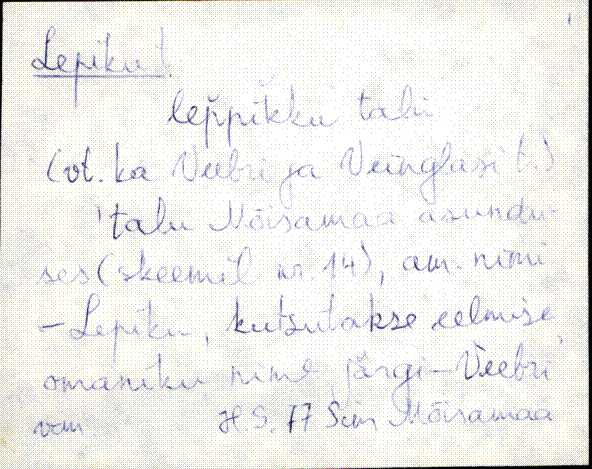 Lepiku t.
lep̆pikku talu
(vt. ka Veebri ja Veinglasi t.)
'talu Mõisamaa asundu-
ses (skeemil nr. 14), am. nimi
– Lepiku, kutsutakse eelmise
omaniku nime järgi – Veebri
vm H. S. 77 Sim Mõisamaa